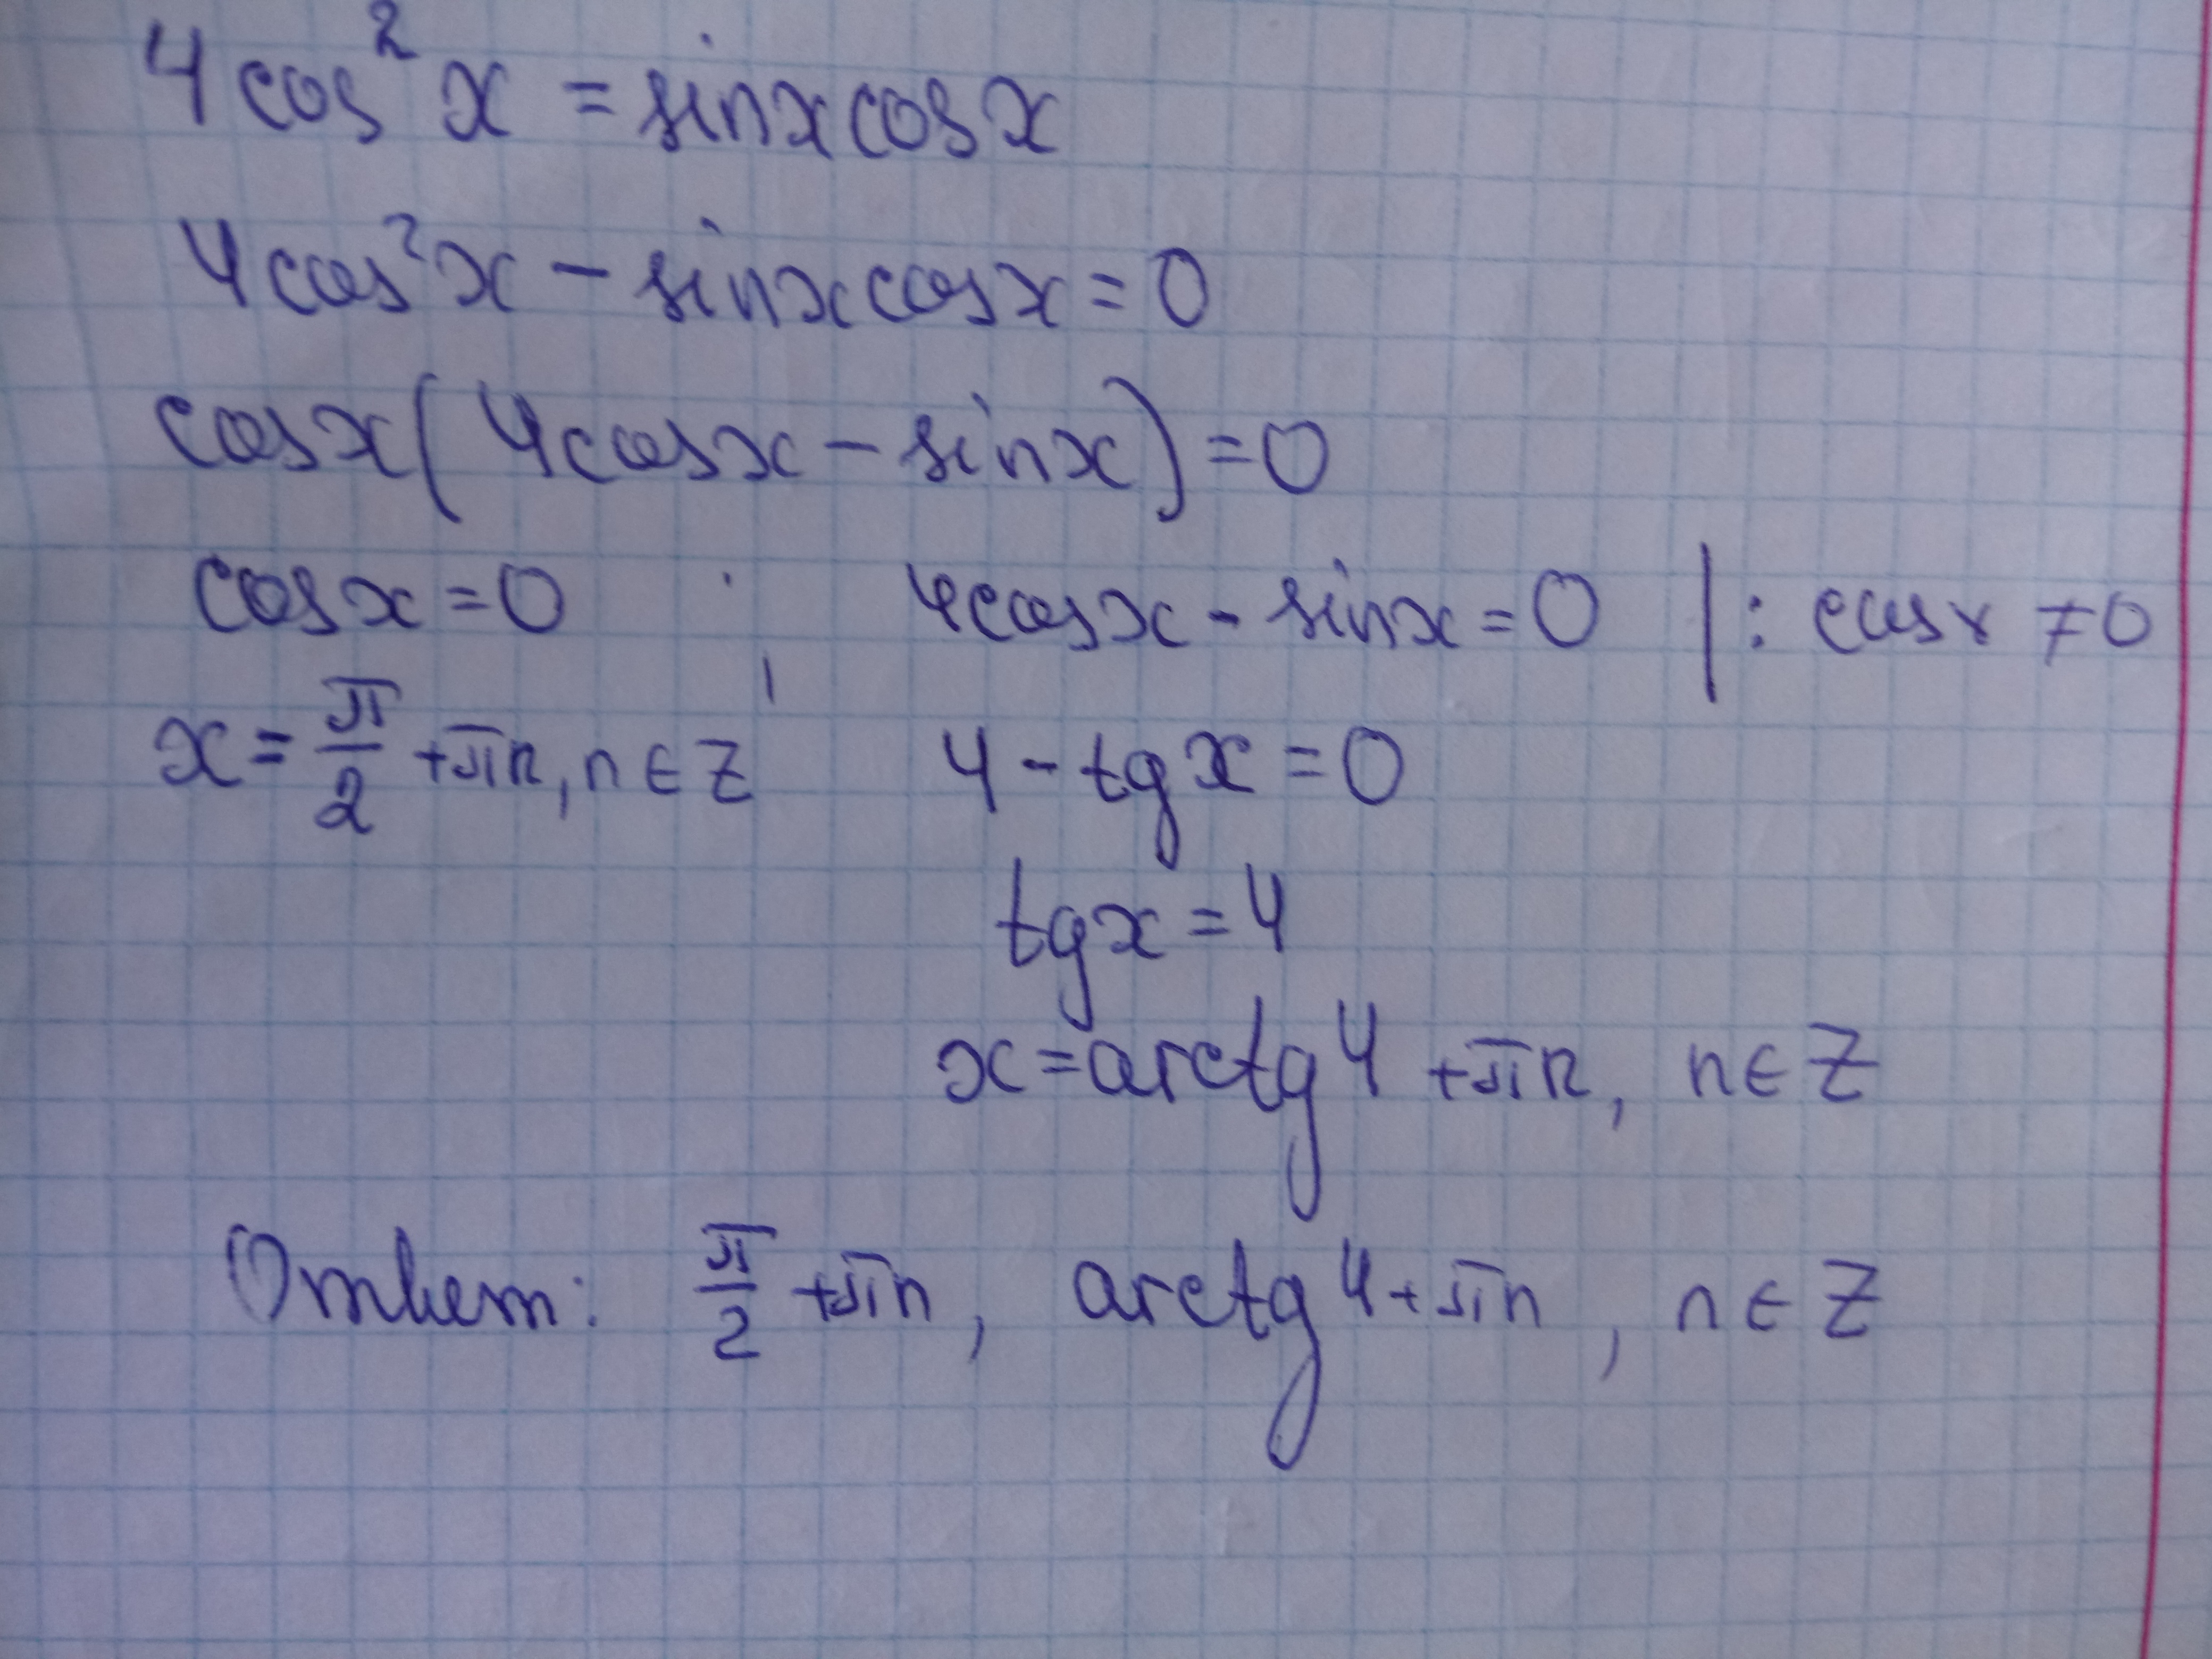 4cos²x = sinxcosx
4cos²x - sinxcosx = 0
cosx(4cosx - sinx) = 0
cosx = 0    4cosx - sinx = 0 | : cosx ≠ 0
x = π/2 + πn, n ∈ Z    4 - tgx = 0
tgx = 4
x = arctg4 + πn, n ∈ Z
Ответ: π/2 + πn, arctg4 + πn, n ∈ Z